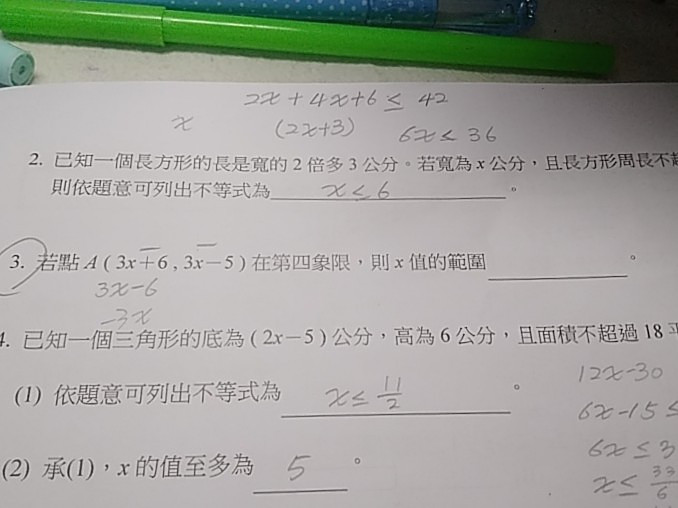 2x + 4x+6 ≤ 42
x (2x+3) 6x ≤ 36
2. 已知一個長方形的長是寬的 2 倍多 3 公分。若寬為 x 公分，且長方形周長不
則依題意可列出不等式為 x ≤ 6 。
3. 若點 A ( 3x+6 , 3x−5 ) 在第四象限，則 x 值的範圍 。
3x-6
-3x
4. 已知一個三角形的底為 ( 2x−5 ) 公分，高為 6 公分，且面積不超過 18
12x-30
(1) 依題意可列出不等式為 x ≤ 11/2 。
6x-15 ≤
6x ≤ 3
(2) 承(1)，x 的值至多為 5 。
x ≤ 33/6